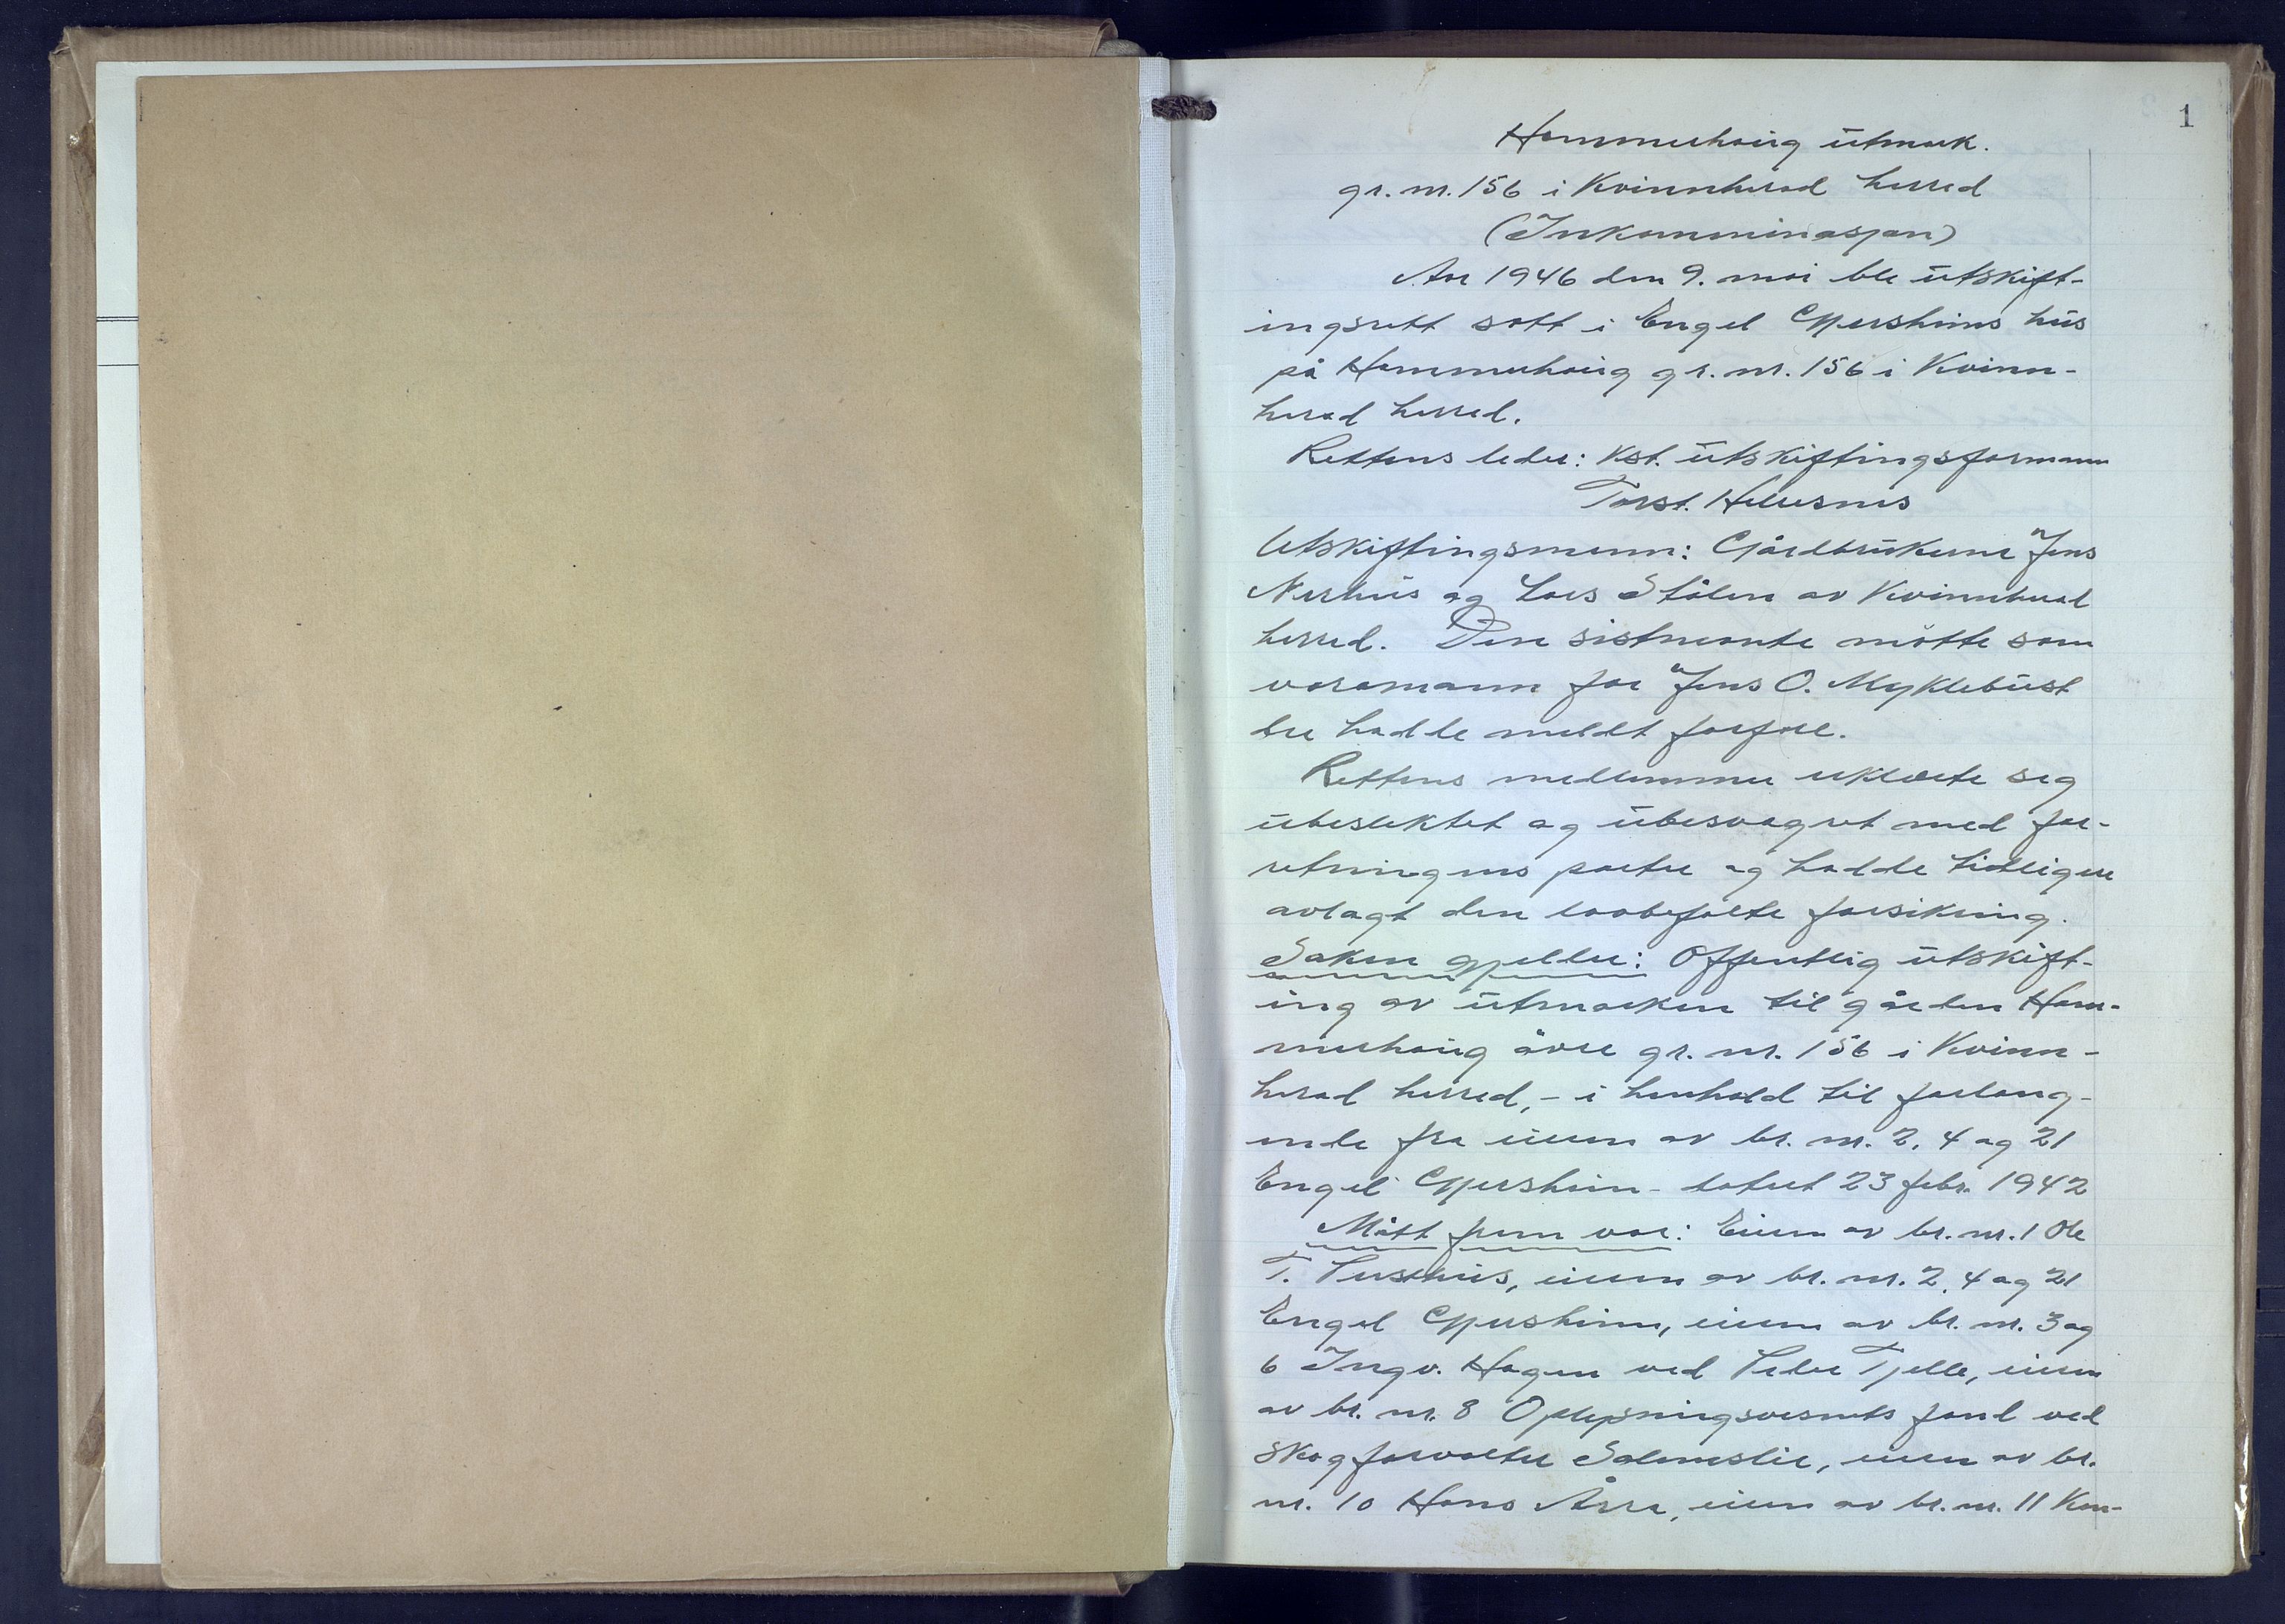 1
Hammerhaug utmark.
gr. nr. 156 i Kvinnherad herred
(Inkaminasjon)
Aar 1946 den 9. mai ble utskift-
ingsrett satt i Engel Gjersheims hus
på Hammerhaug gr. nr. 156 i Kvinn-
herad herred.
Rettens leder: Kst. utskiftingsformann
Torst. Hellesnes
Utskiftingsmenn: Gårdbrukerne Jens
Nerhus og Lars Stålen av Kvinnherad
herred. Den sistnevnte møtte som
varamann for Jens O. Myklebust
der hadde meldt forfall.
Rettens medlemmer erklærte seg
ubeslektet og ubesvogret med for-
retningens parter og hadde tidligere
avlagt den lovbefalte forsikring.
Saken gjelder: Offentlig utskift-
ing av utmarken til gården Ham-
merhaug øvre gr. nr. 156 i Kvinn-
herad herred, - i henhold til forlang-
ende fra eieren av br. nr. 2, 4 og 21
Engel Gjersheim - datert 23 febr. 1942
Møtt frem var: Eieren av br. nr. 1 Ole
T. Pershus, eieren av br. nr. 2, 4 og 21
Engel Gjersheim, eieren av br. nr. 3 og
6 Ingv. Hagen ved Peder Tjelle, eieren
av br. nr. 8 Oplysningsvesnets fond ved
Skogforvalter Solemslie, eieren av br.
nr. 10 Hans Årra, eieren av br. nr. 11 Kon-